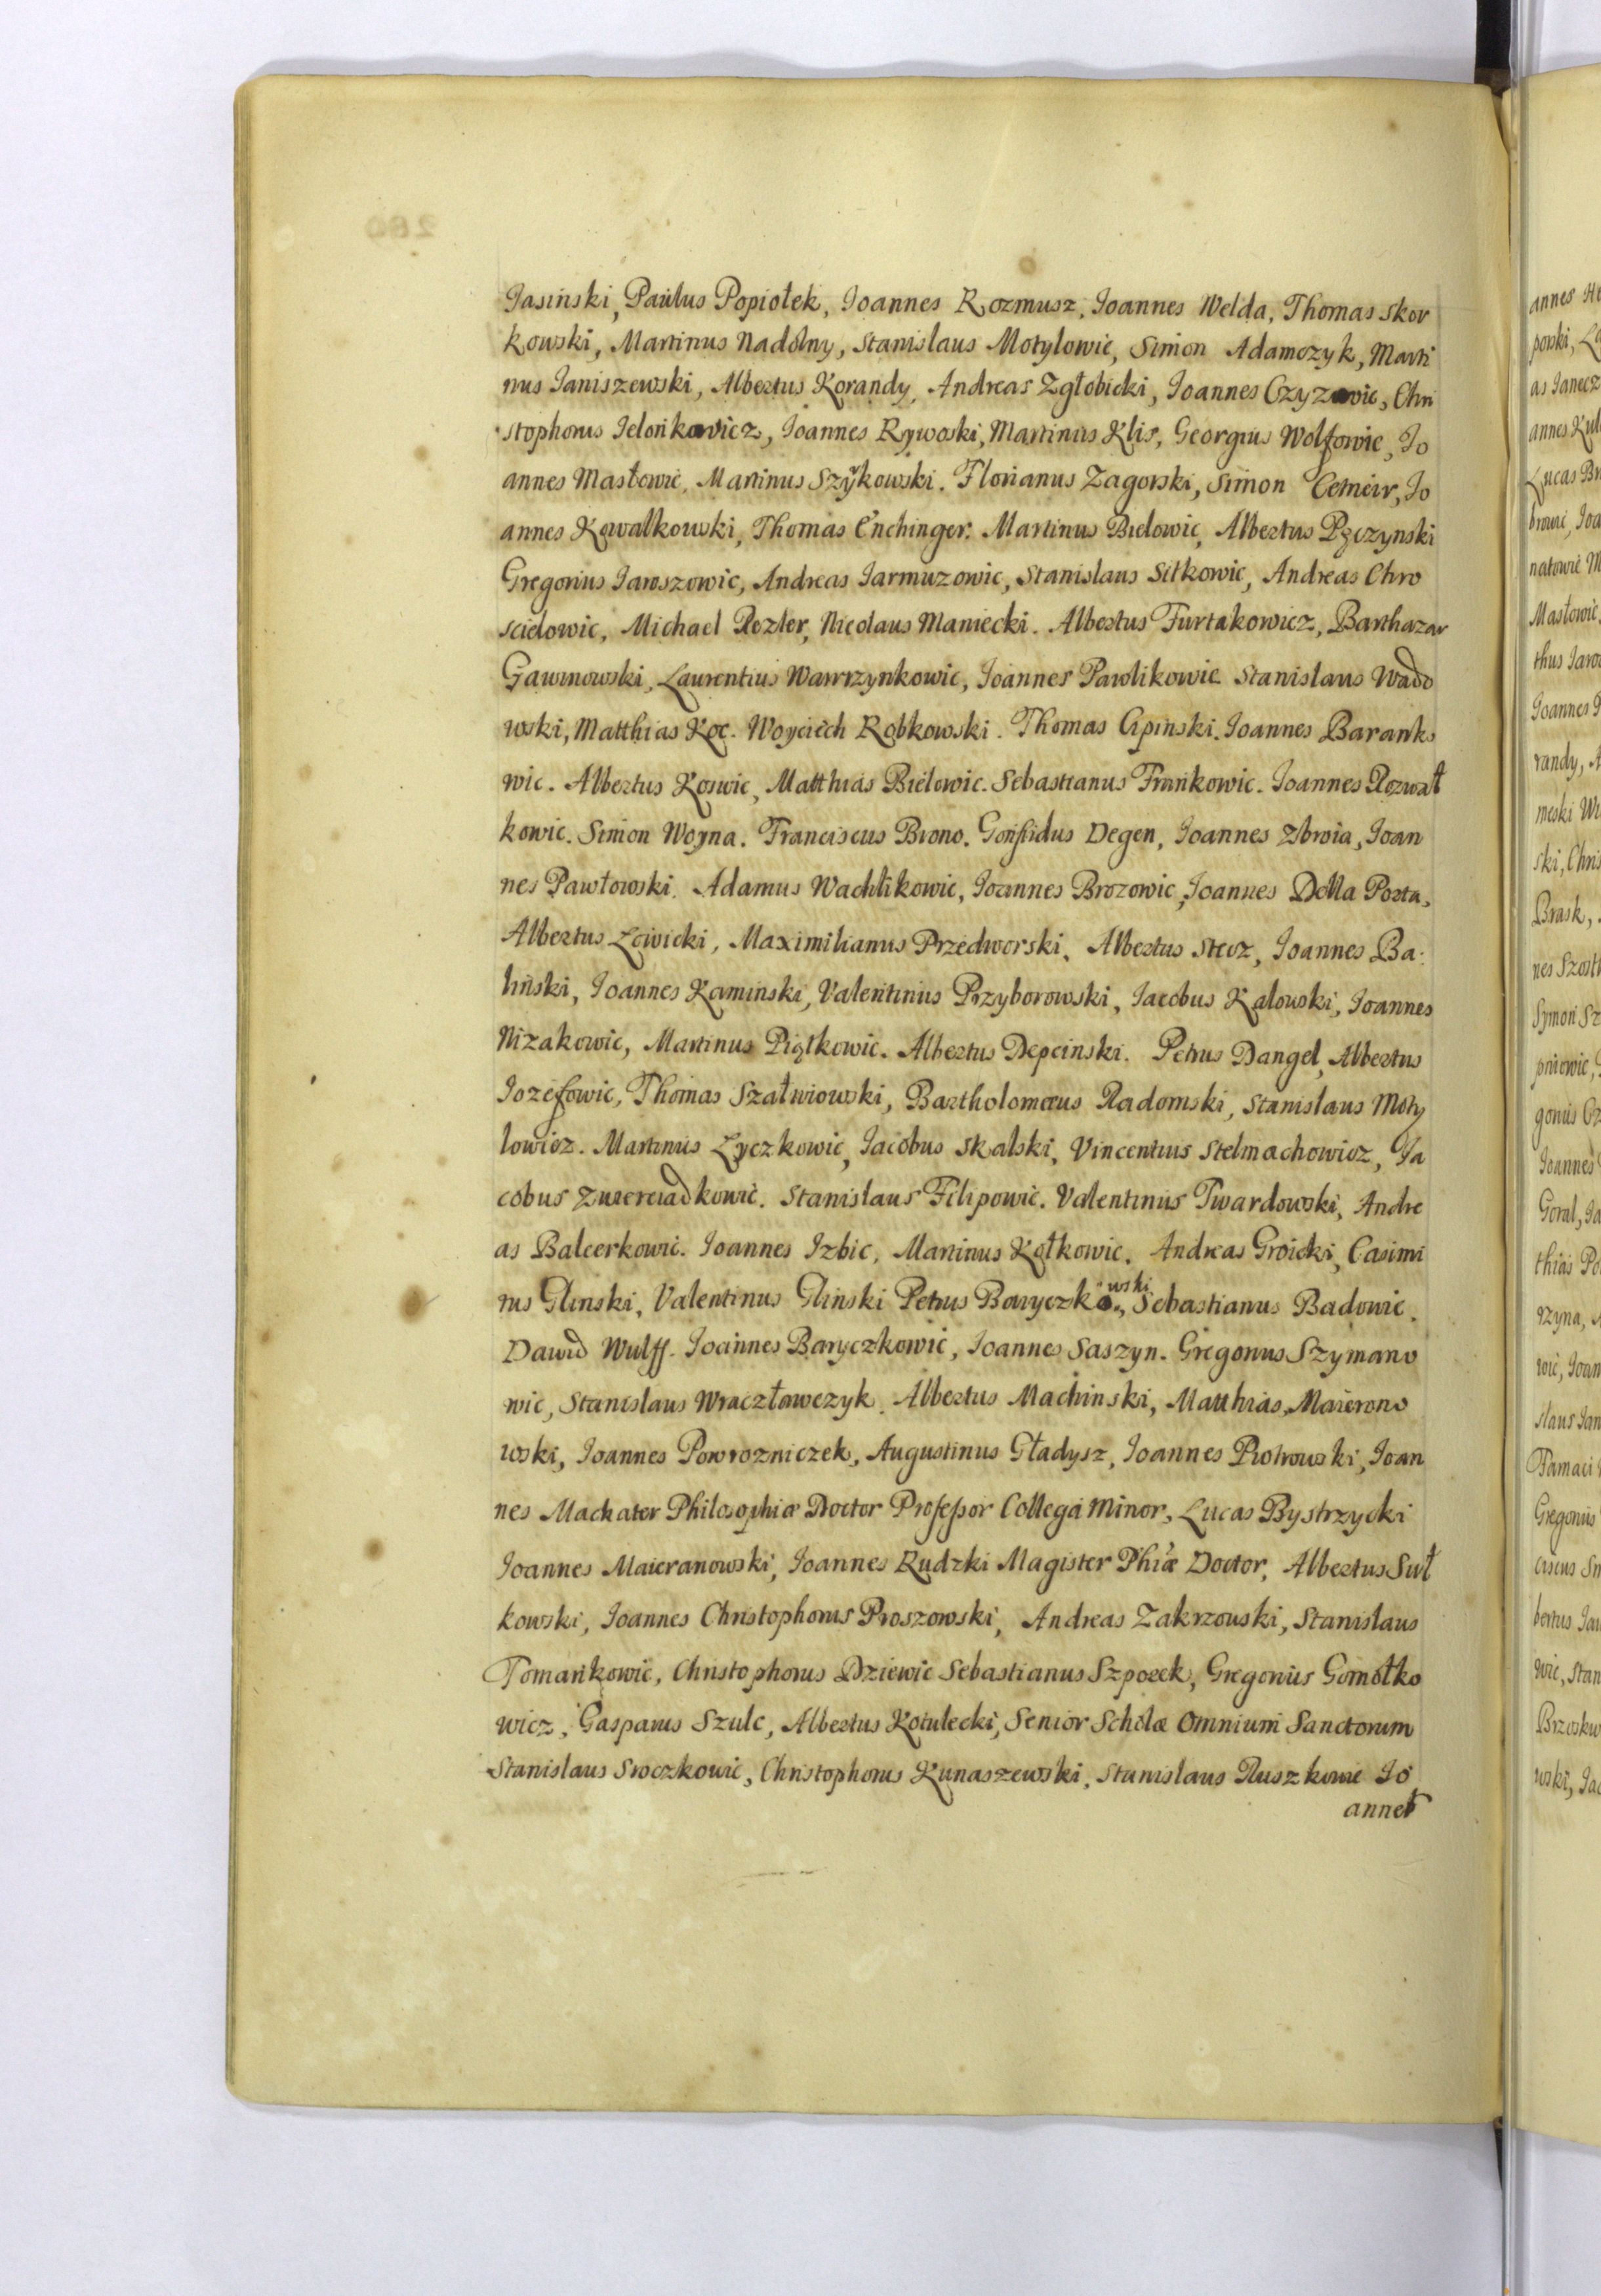 Jasiński, Paulus Popiołek, Joannes Rozmusz, Joannes Welda, Thomas Skor
kowski, Martinus Nadolny, Stanislaus Motylowic, Simon Adamczyk, Marti
nus Janiszewski, Albertus Korandy, Andreas Zgłobicki, Joannes Czyzowic, Chri
stophorus Jelonkowicz, Joannes Rywoski, Martinus Klis, Georgius Wolfowic, Jo
annes Masłowic, Martinus Szykowski. Florianus Zagorski, Simon Jo
annes Kowalkowski, Thomas Enchinger. Martinus Bielowic, Albertus Pęczynski
Gregorius Jaroszowic, Andreas Jarmuzowic, Stanislaus Sitkowic, Andreas Chro
scielowic, Michael Rezler, Nicolaus Maniecki. Albertus Furtakowicz, Barthazar
Gawinowski, Laurentius Wawrzynkowic, Joannes Pawlikowic Stanislaus Wado
wski, Matthias Koc. Woyciech Robkowski. Thomas Cipinski. Joannes Baranko
wic. Albertus Koswic, Matthias Bielowic. Sebastianus Frankowic. Joannes Rozwał
kowic. Simon Woyna. Franciscus Brono. Degen, Joannes Zbroia, Joan
nes Pawłowski. Adamus Wachlikowic, Joannes Brozowic, Joannes Della Porta,
Albertus Lowicki, Maximilianus Przedworski, Albertus Stecz, Joannes Ba
liński, Joannes Kaminski, Valentinus Przyborowski, Jacobus Kalowski, Joannes
Nizakowic, Martinus Piątkowic. Albertus Depcinski. Petrus Dangel, Albertus
Jozefowic, Thomas Szałwiowski, Bartholomæus Radomski, Stanislaus Moty
lowicz. Martinus Lyczkowic, Jacobus Skalski, Vincentius Stelmachowicz, Ja
cobus Zwierciadkowic. Stanislaus Filipowic. Valentinus Twardowski, Andre
as Balcerkowic. Joannes Izbic, Martinus Kołkowic. Andreas Groicki, Casimi
rus Glinski, Valentinus Gliński Petrus Baryczkowski, Sebastianus Badowic.
Dawid Wulff. Joannes Baryczkowic, Joannes Saszyn. Gregorius Szymano
wic, Stanislaus Wraczławczyk. Albertus Machinski, Matthias Maierano
wski, Joannes Powrozniczek, Augustinus Gładysz, Joannes Piotrowski, Joan
nes Mackater Philosophiæ Doctor Professor Collega Minor, Lucas Bystrzycki
Joannes Maieranowski, Joannes Rudzki Magister Phiæ Doctor, Albertus Suł
kowski, Joannes Christophorus Proszowski, Andreas Zakrzowski, Stanislaus
Tomankowic, Christophorus Dziewic Sebastianus Szporek, Gregorius Gomołko
wicz, Gasparus Szulc, Albertus Kotulecki, Senior Scholæ Omnium Sanctorum
Stanislaus Sroczkowic, Christophorus Kunaszewski, Stanislaus Ruszkowic Jo
annes